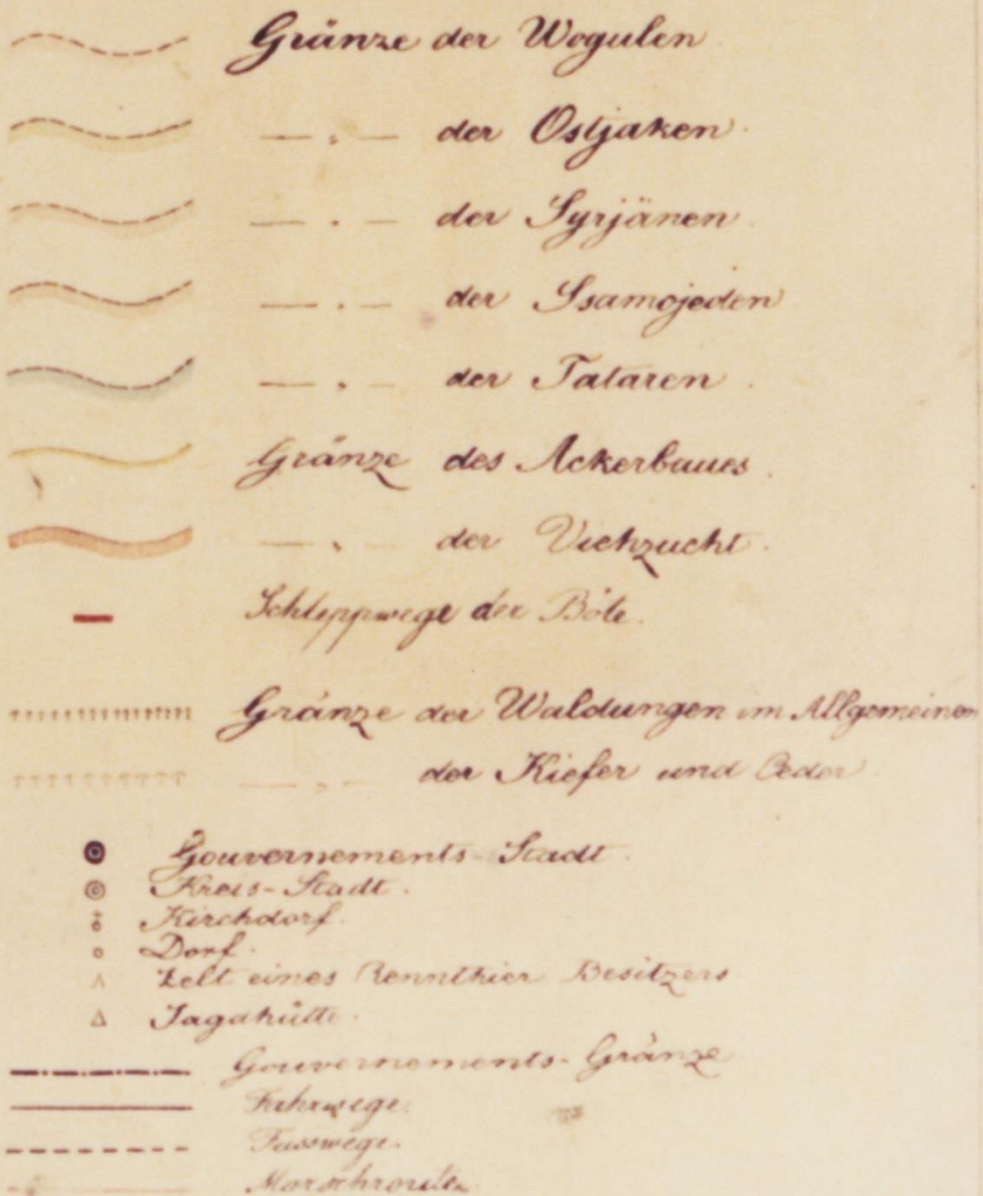 Gränze der Wogulen
— . — der Ostjaken.
— . — der Syrjänen.
— . — der Ssamojeden
— . — der Tataren.
Gränze des Ackerbaues.
— . — der Viehzucht.
Schleppwege der Böte.
Gränze der Waldungen im Allgemeinen
— . — der Kiefer und Ceder
Gouvernements-Stadt.
Kreis-Stadt.
Kirchdorf.
Dorf.
Zelt eines Rennthier Besitzers
Jagdhütte.
Gouvernements-Gränze
Fahrwege.
Fusswege.
Marschroute.